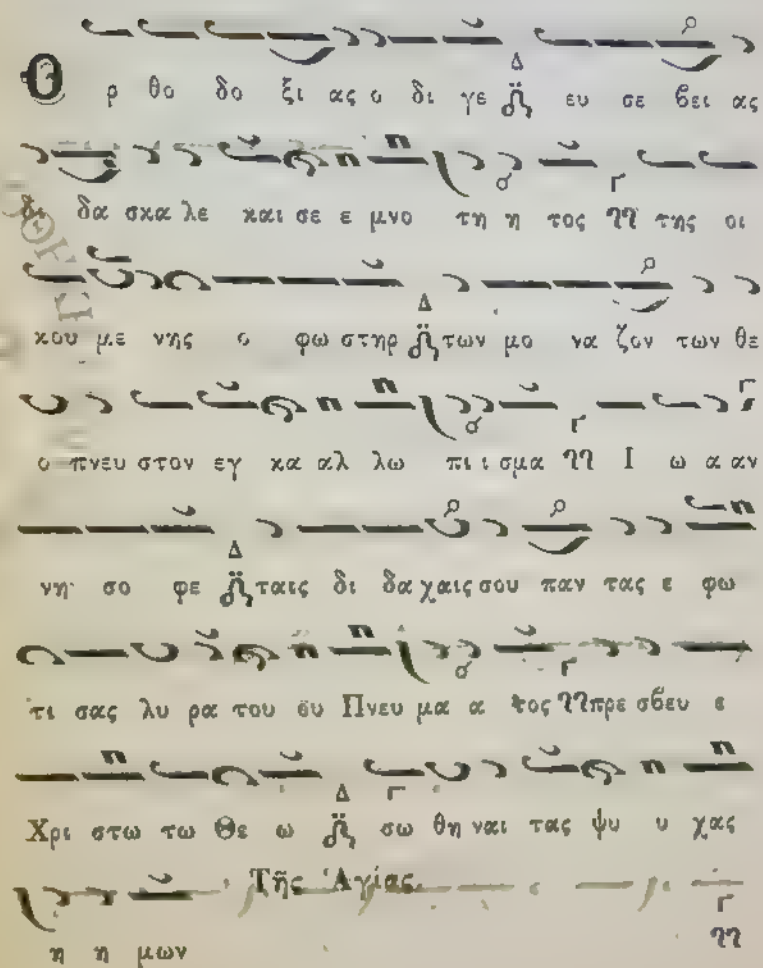 Ο ρ θο δο ξι ας ο δι γε Δ ευ σε βει ας
δι δα σκα λε και σε ε μνο τη η τος Γ της οι
κου με νης ο φω στηρ Δ των μο να ζον των θε
ο πνευ στον εγ κα αλ λω πι ι σμα Γ Ι ω α αν
νη σο φε Δ ταις δι δα χαις σου παν τας ε φω
τι σας λυ ρα του ου Πνευ μα α τος Γ πρε σβευ ε
Χρι στω τω Θε ω Δ σω θη ναι τας ψυ υ χας
Τῆς Ἁγίας
η η μων Γ